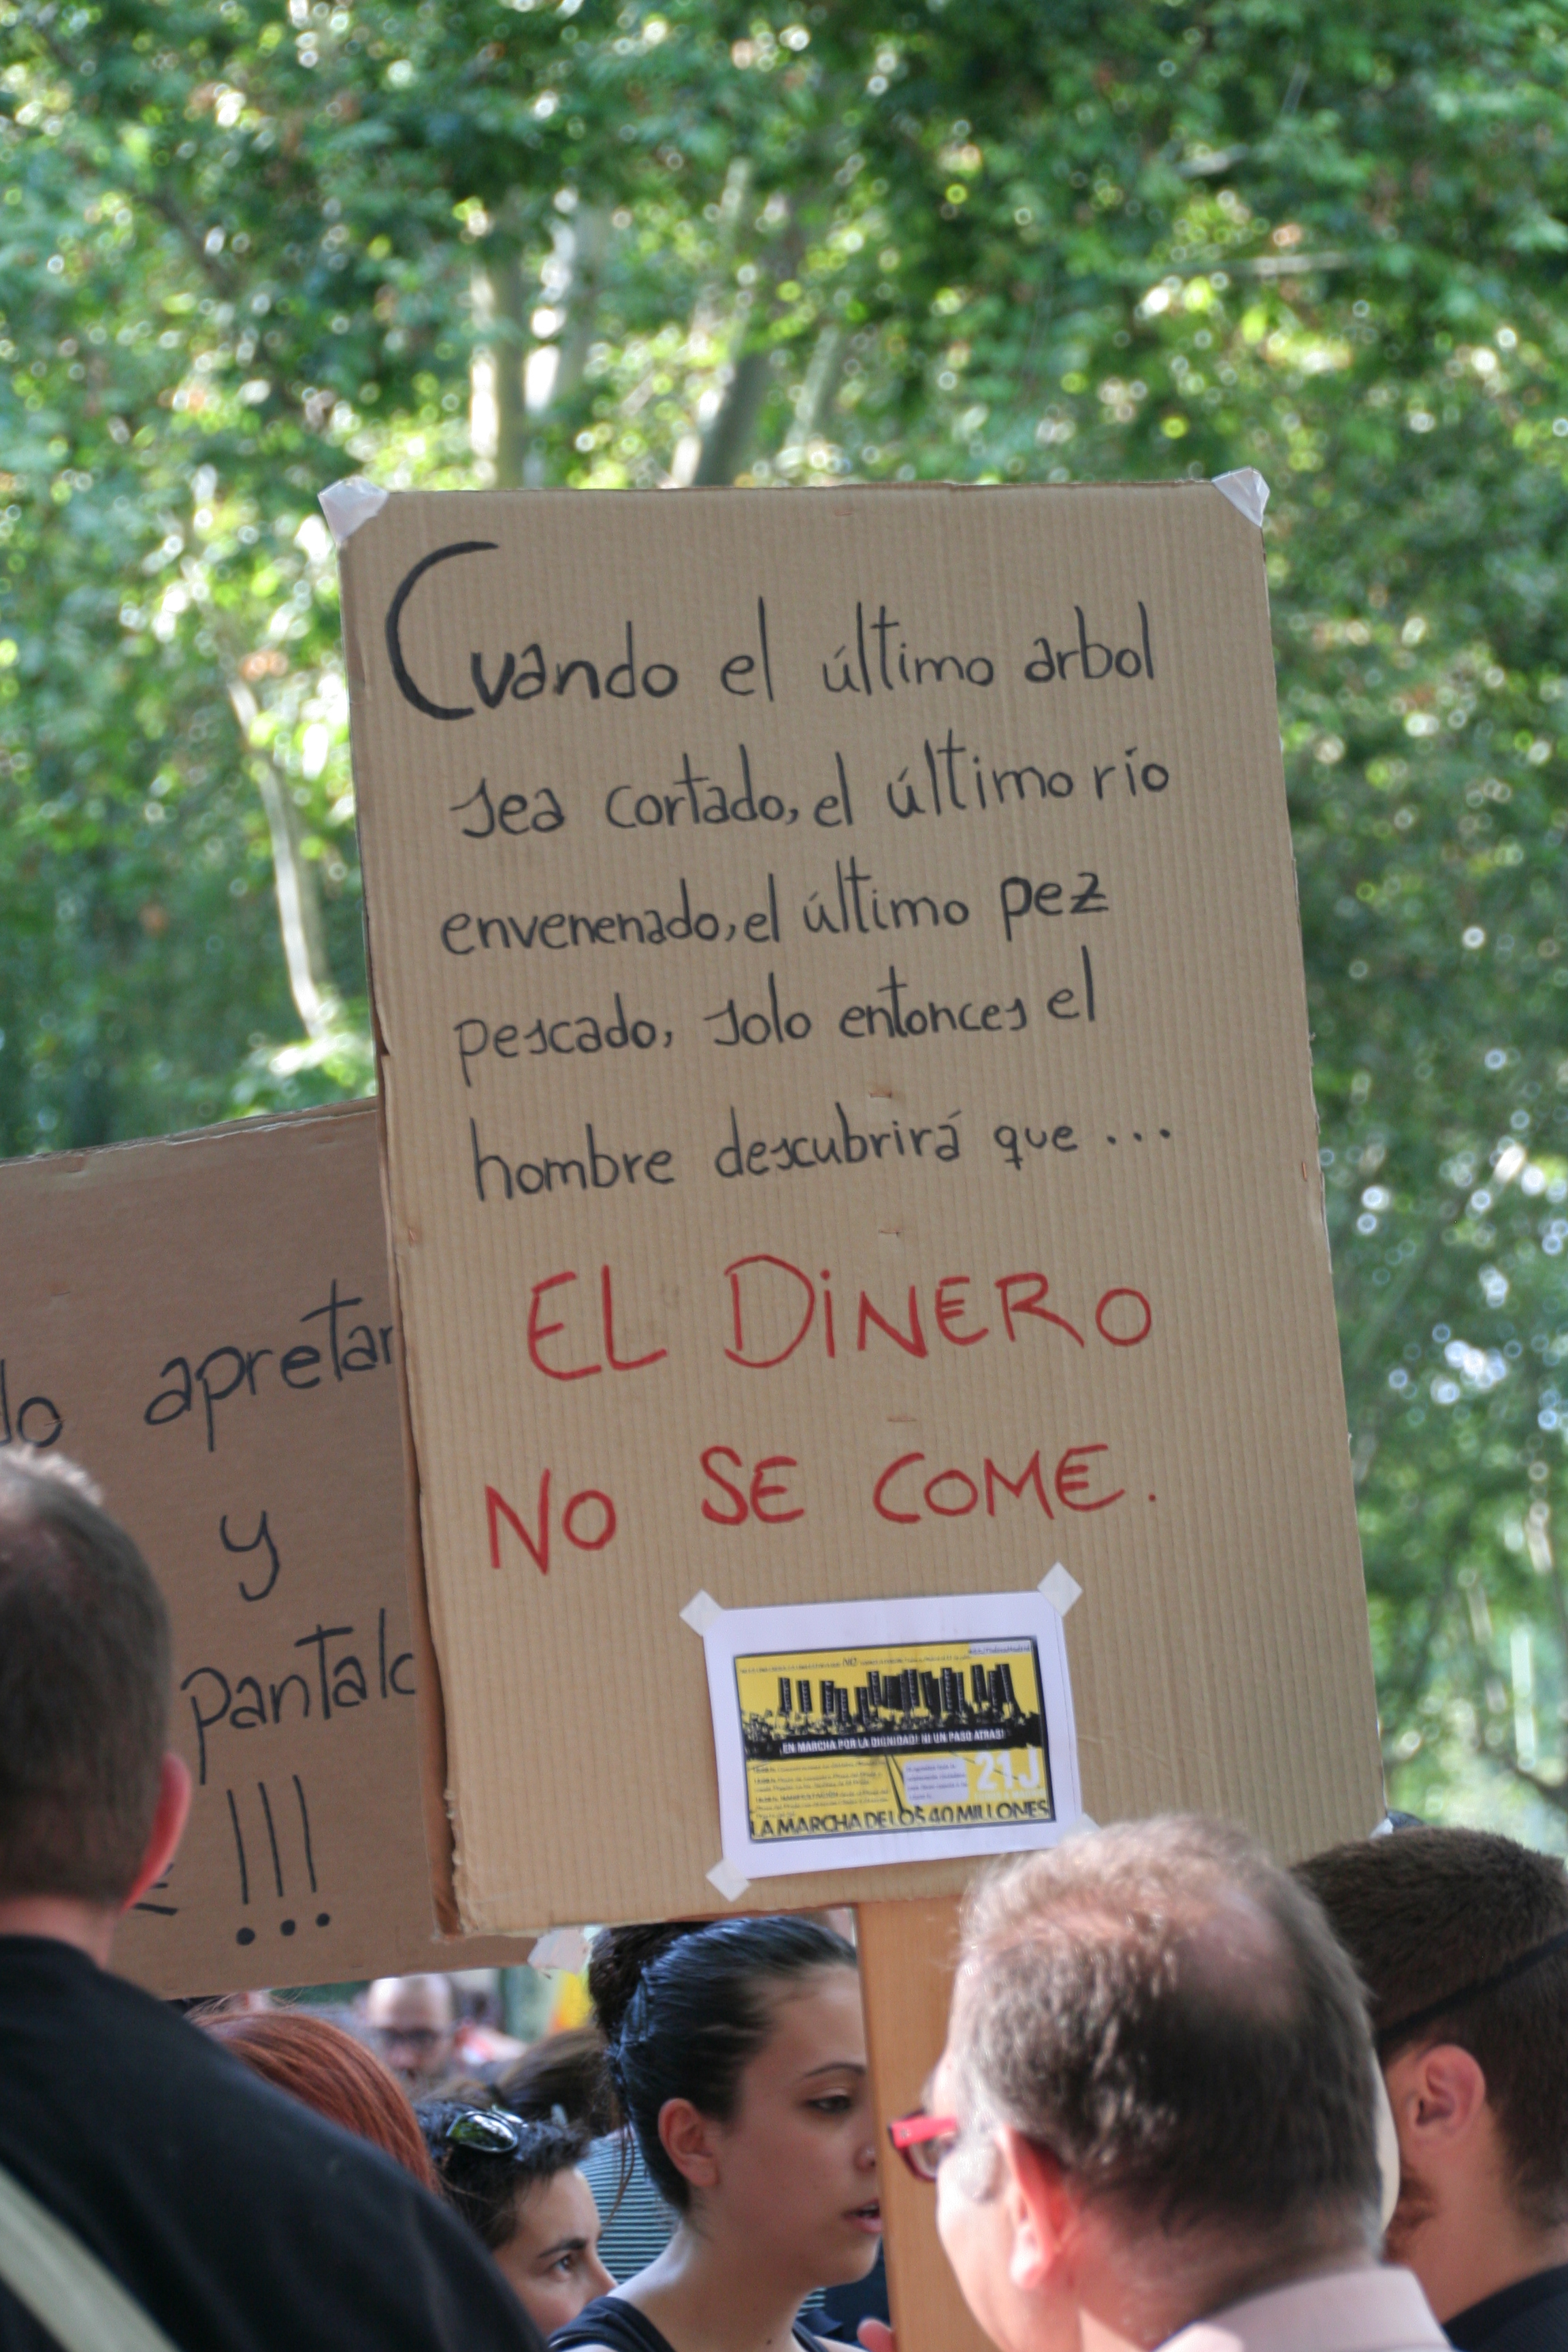 Cuando el último arbol
sea cortado, el último río
envenenado, el último pez
pescado, solo entonces el
hombre descubrirá que ...
EL DINERO
NO SE COME.
apretar
y
!!!
NO
¡EN MARCHA POR LA DIGNIDAD! NI UN PASO ATRAS!
21J
LA MARCHA DE LOS 40 MILLONES